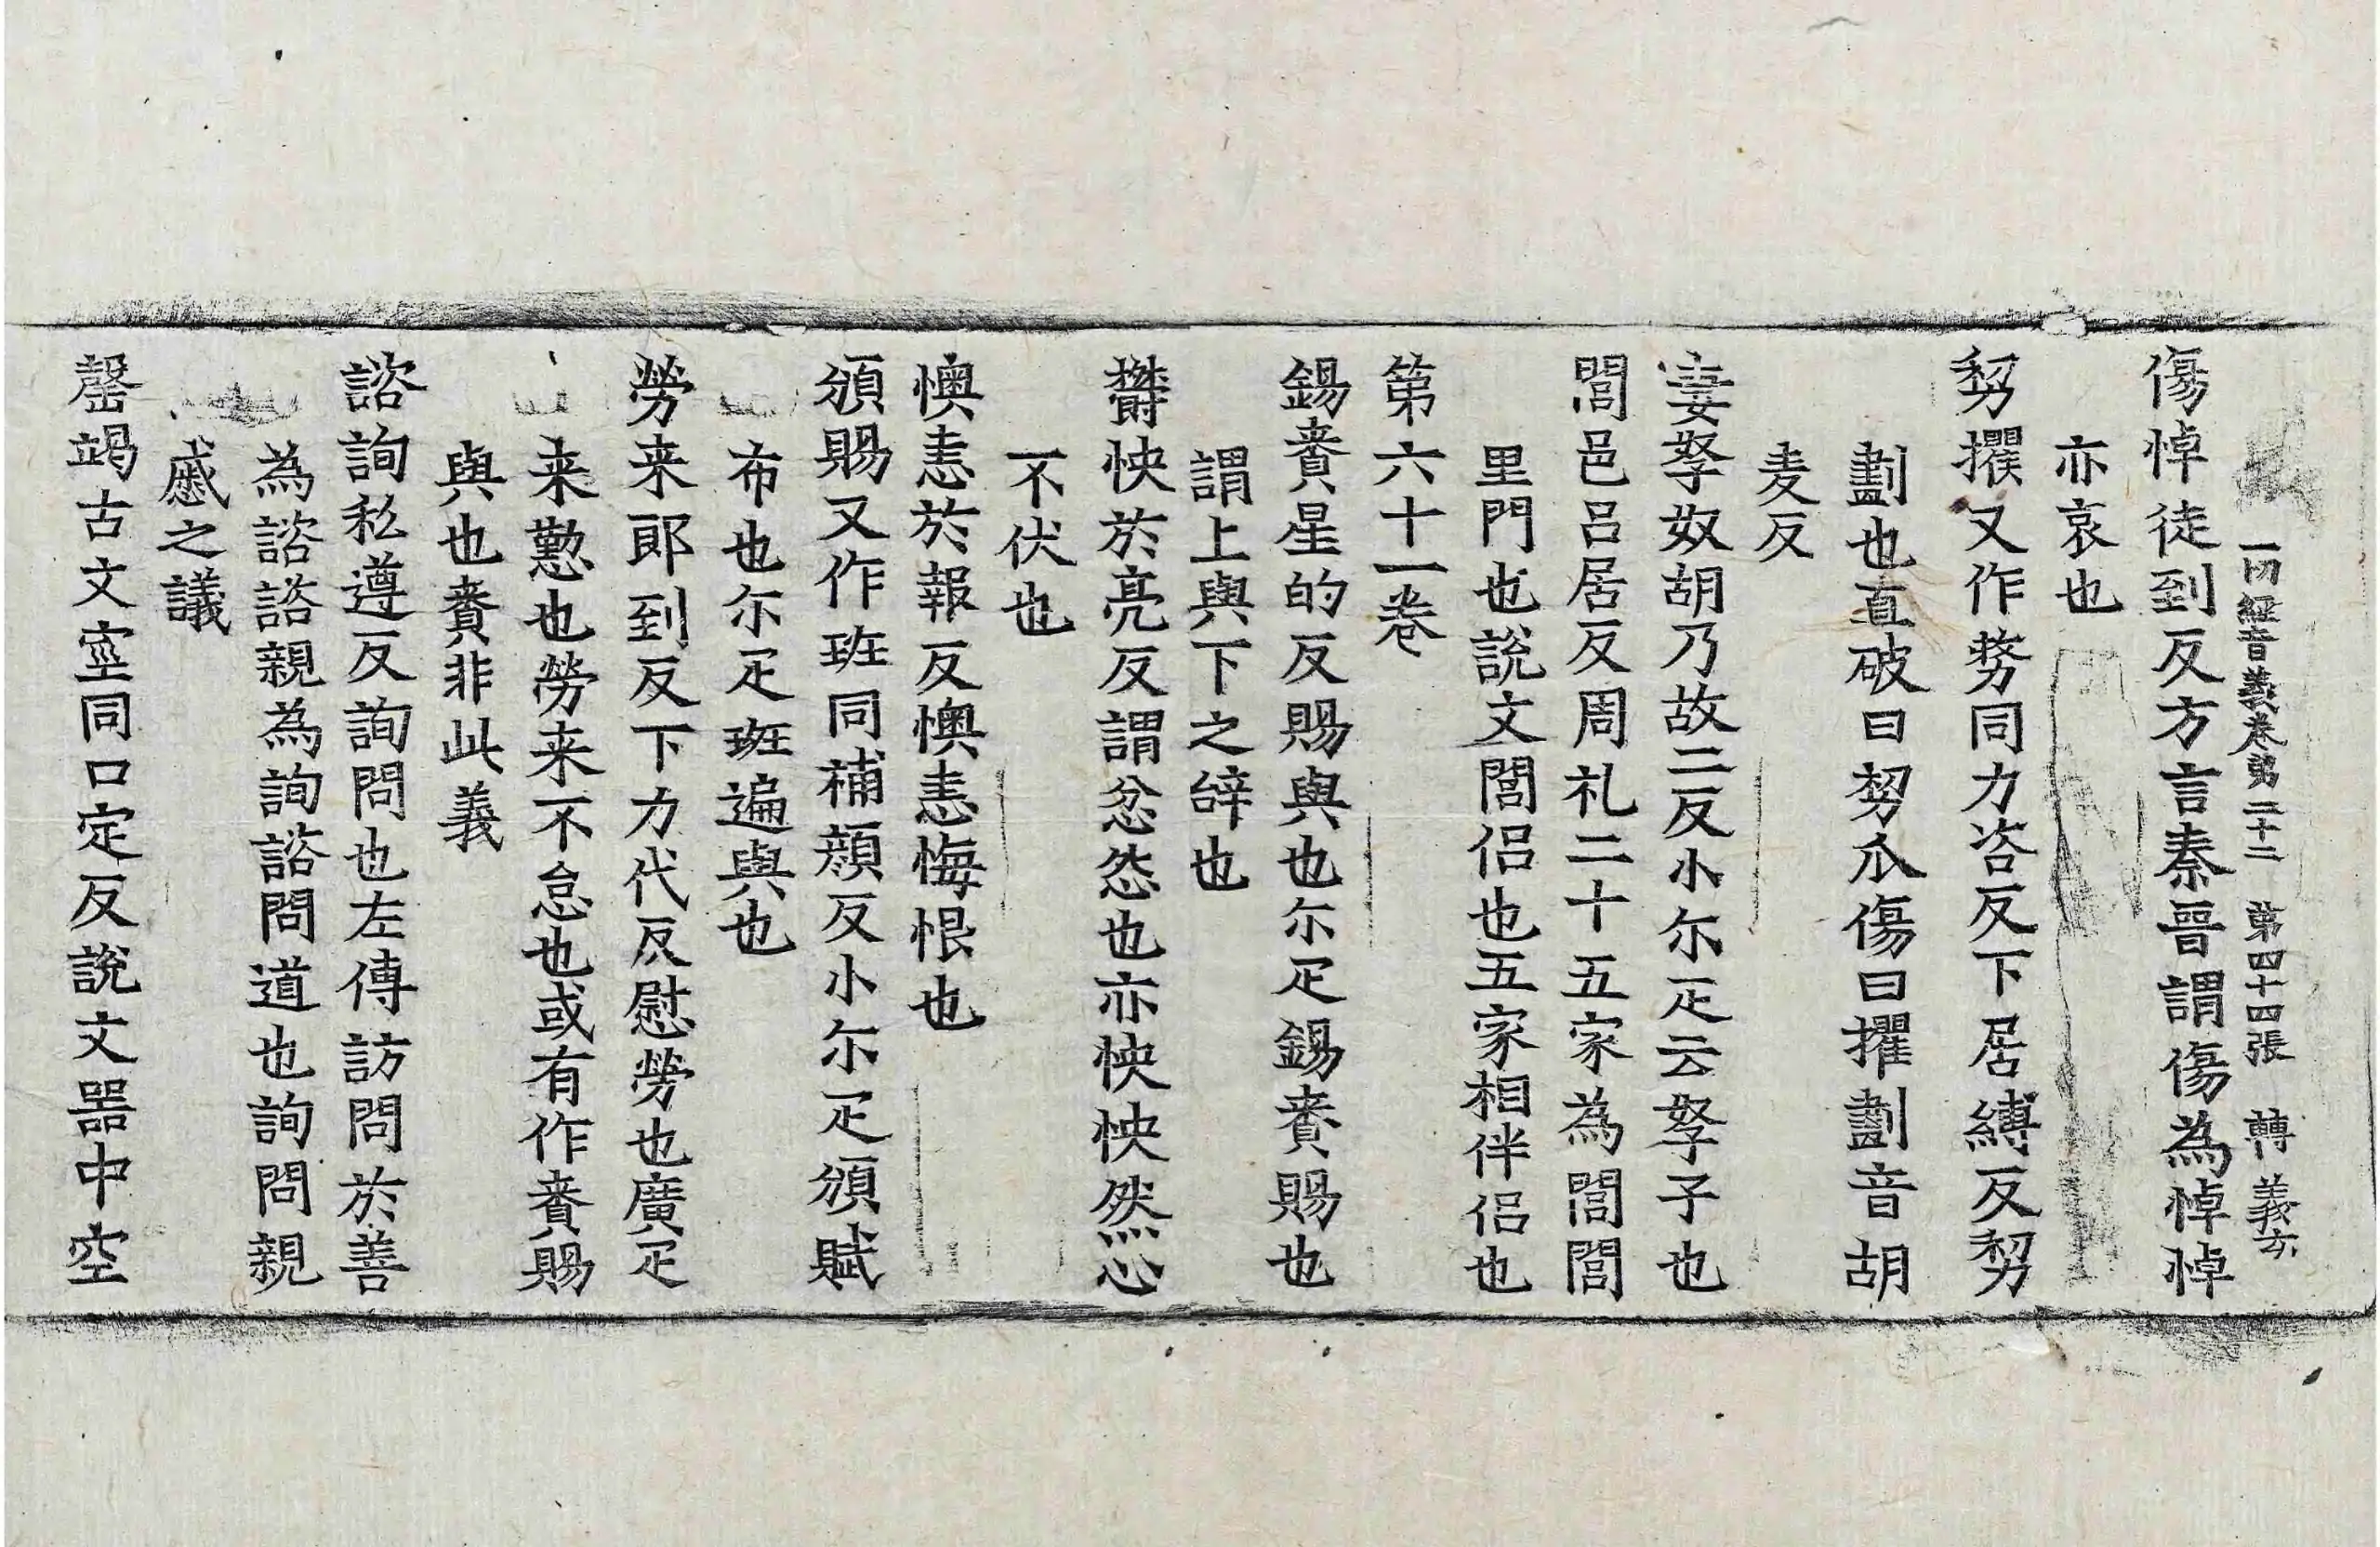 一切經音義卷第二十二 第四十四張 轉 義方
傷悼徒到反方言秦晉謂傷為悼悼
亦哀也
剺攫又作𠢐同力咨反下居縛反剺
劃也直破曰剺爪傷曰攫劃音胡
麦反
妻孥奴胡乃故二反小尔疋云孥子也
閭邑呂居反周礼二十五家為閭閭
里門也說文閭侶也五家相伴侶也
第六十一卷
錫賚星的反賜與也尔疋錫賚賜也
謂上與下之辝也
欝怏於亮反謂忿怨也亦怏怏然心
不伏也
懊恚於報反懊恚悔恨也
頒賜又作班同補顔反小尔疋頒賦
布也尔疋班遍與也
勞来郎到反下力代反慰勞也廣疋
来懃也勞来不怠也或有作賚賜
與也賚非此義
諮詢私遵反詢問也左傳訪問於善
為諮諮親為詢諮問道也詢問親
戚之議
罄竭古文窒同口定反說文器中空